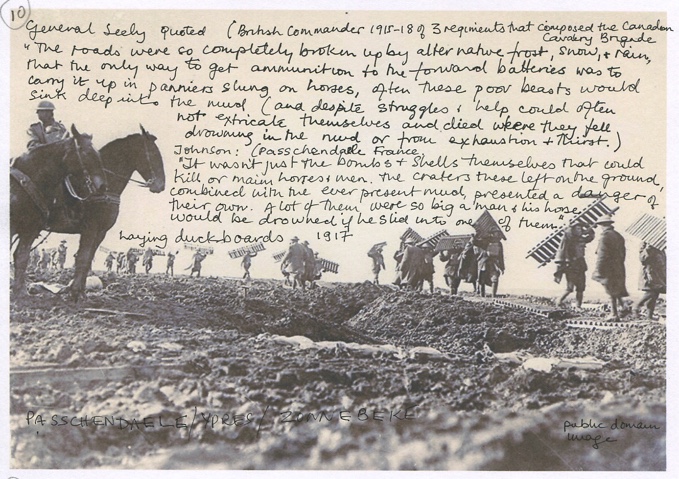 10
General Seely quoted (British Commander 1915-18 of 3 regiments that composed the Canadian
Cavalry Brigade
"The roads were so completely broken up by alternative frost, snow, & rain,
that the only way to get ammunition to the forward batteries was to
carry it up in panniers slung on horses, often these poor beasts would
sink deep into the mud (and despite struggles & help could often
not extricate themselves and died where they fell
drowning in the mud or from exhaustion & thirst.)
Johnson: (Passchendaele France
"It wasn't just the bombs & shells themselves that could
kill or maim horses & men. The craters these left on the ground,
combined with the ever present mud, presented a danger of
their own. A lot of them were so big a man & his horse
would be drowned if he slid into one of them."
Laying duckboards 1917
PASSCHENDAELE/YPRES/ZONNEBEKE
public domain
image